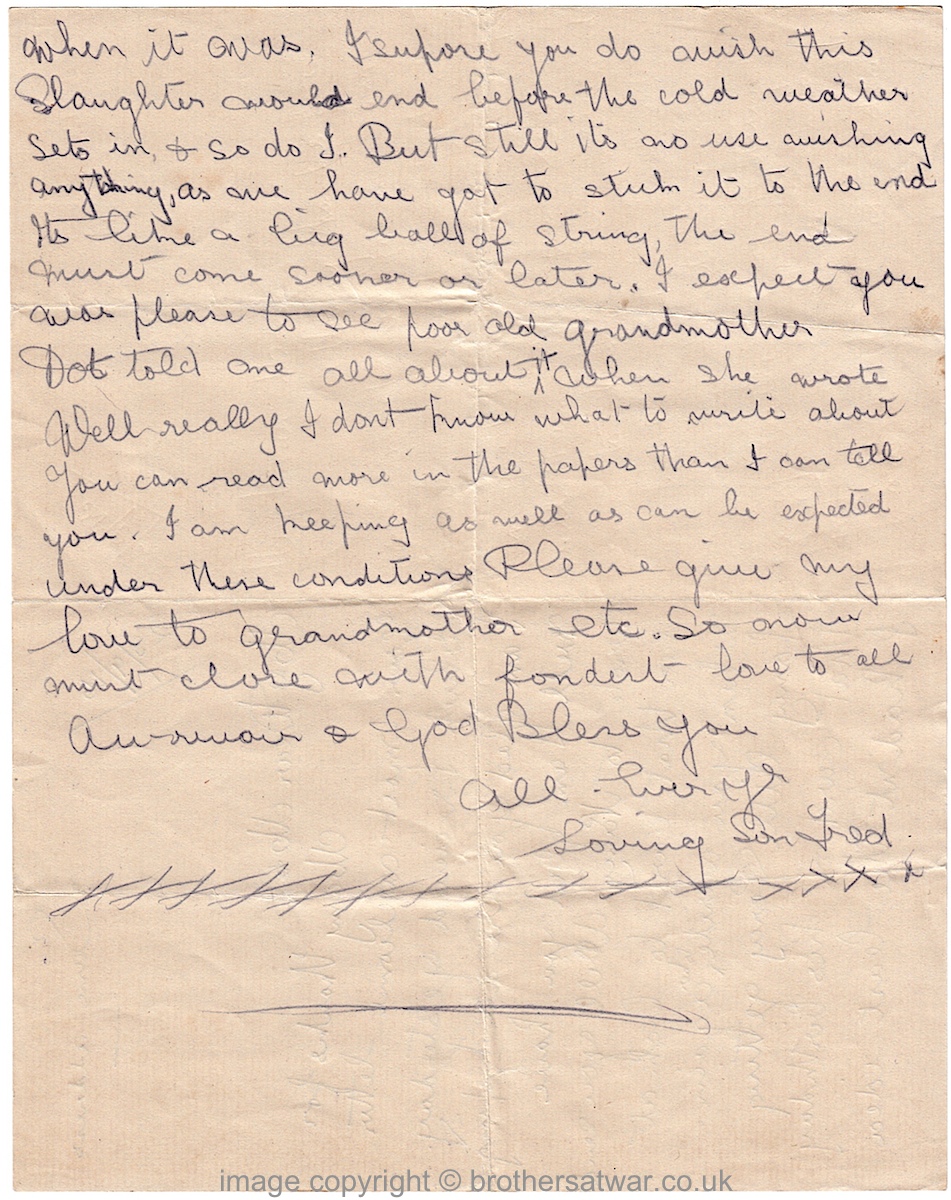 when it was. I supose you do wish this
Slaughter would end before the cold weather
Sets in, & so do I. But still its no use wishing
anything, as we have got to stick it to the end
Its like a big ball of string, the end
must come sooner or later. I expect you
was please to see poor old grandmother
Dot told me all about it when she wrote
Well really I dont know what to write about
You can read more in the papers than I can tell
you. I am keeping as well as can be expected
under these conditions Please give my
love to grandmother etc. So now
must close with fondest love to all
Au-revoir & God Bless you
All. Ever Yr
Loving Son Fred
x x x x
image copyright © brothersatwar.co.uk